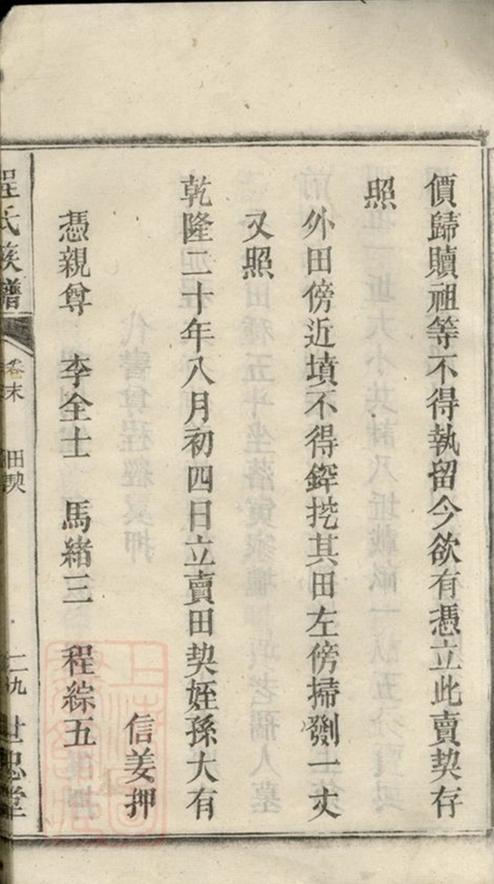 價歸贖祖等不得執留今欲有憑立此賣契存
照
外田傍近墳不得鋅挖其田左傍掃劉一丈
又照
乾隆二十年八月初四日立賣田契姪孫大有
信姜押
憑親尊 李全士 馬緒三 程綜五
程氏族譜 卷末 田契 二九 世忠堂